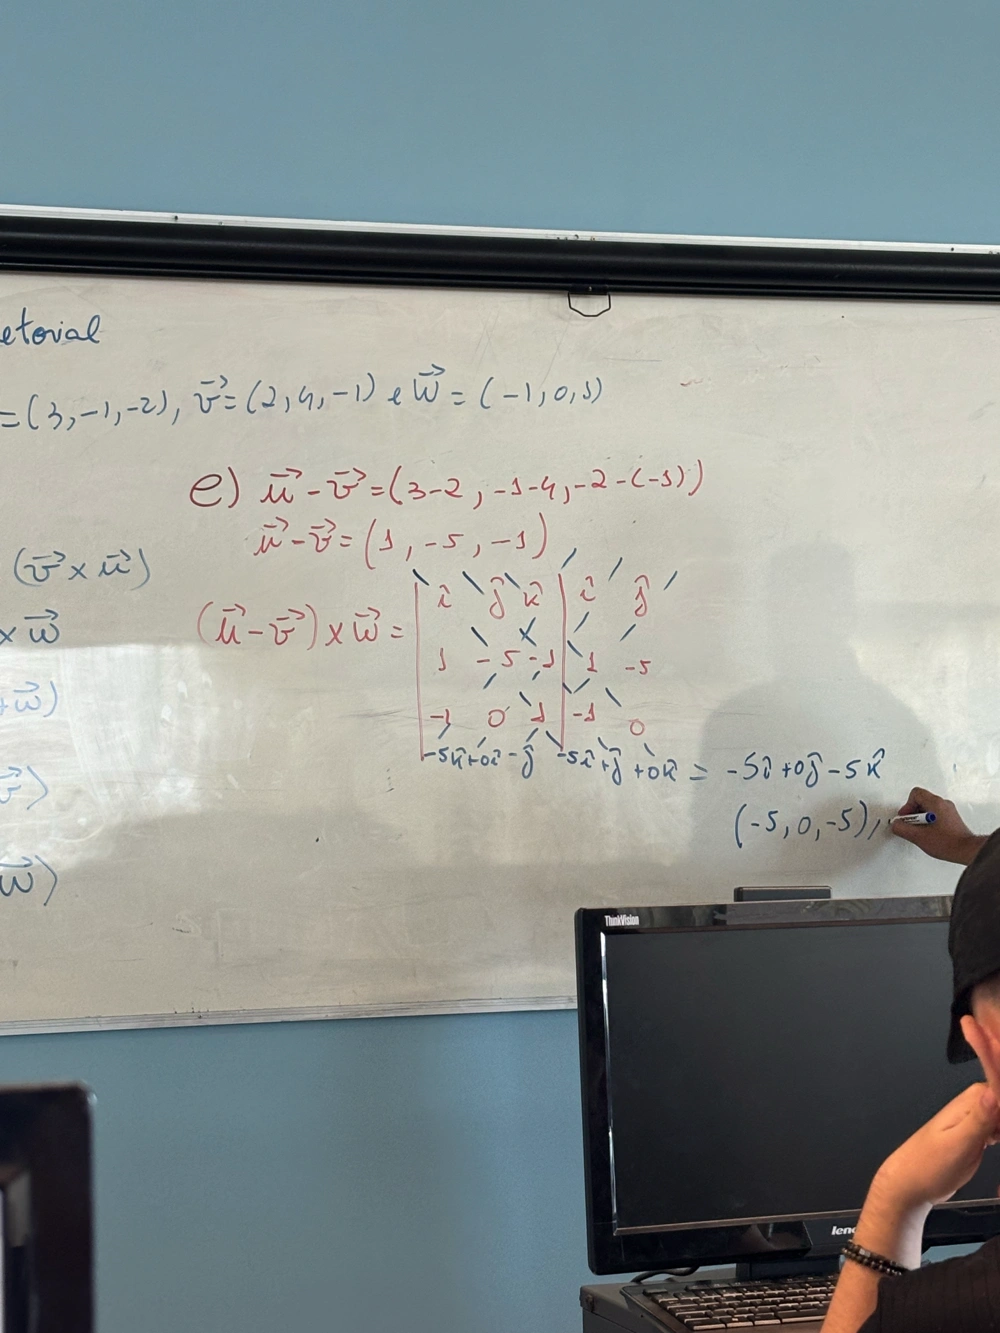 etorial
=(3,-1,-2), v⃗=(2,4,-1) e w⃗=(-1,0,1)
e) u⃗-v⃗=(3-2, -1-4, -2-(-1))
u⃗-v⃗=(1, -5, -1)
(v⃗×u⃗)
×w⃗
+w⃗)
v⃗⟩
w⃗⟩
(u⃗-v⃗)×w⃗=
| î ĵ k̂ | î ĵ
| 1 -5 -1 | 1 -5
| -1 0 1 | -1 0
-5k̂+0î-ĵ -5î+ĵ+0k̂ = -5î+0ĵ-5k̂
(-5, 0, -5)
ThinkVision
leno